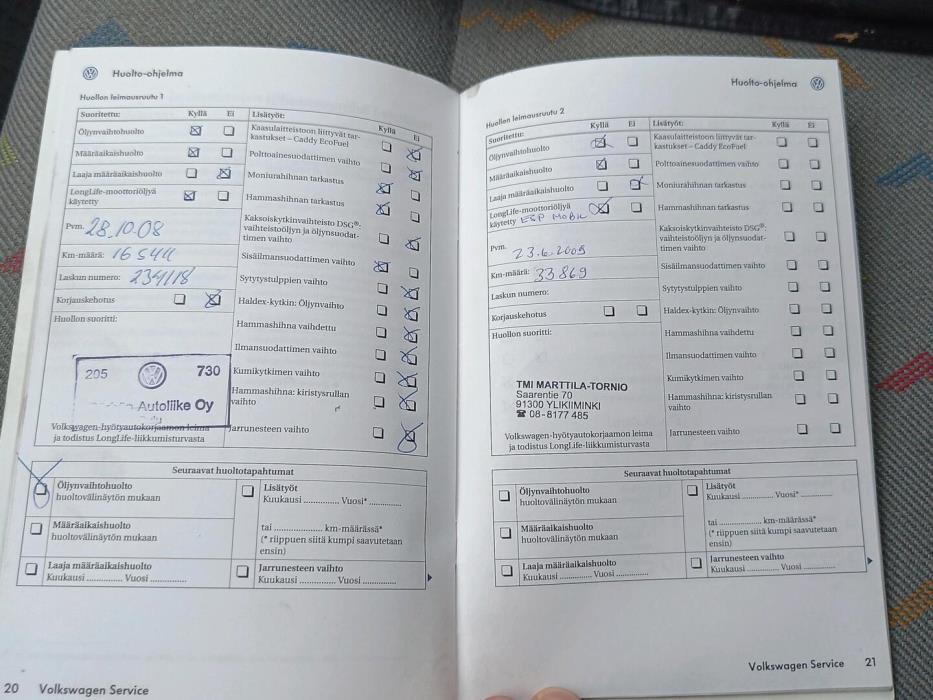 Huolto-ohjelma
Huollon leimausruutu 1
Suoritettu: Kyllä Ei
Öljynvaihtohuolto
Määräaikaishuolto
Laaja määräaikaishuolto
LongLife-moottoriöljyä
käytetty
Pvm. 28.10.08
Km-määrä: 16544
Laskun numero: 234118
Korjauskehotus
Huollon suoritti:
205 730
Autoliike Oy
Volkswagen-hyötyautokorjaamon leima
ja todistus LongLife-liikkumisturvasta
Lisätyöt: Kyllä Ei
Kaasulaitteistoon liittyvät tar-
kastukset – Caddy EcoFuel
Polttoainesuodattimen vaihto
Moniurahihnan tarkastus
Hammashihnan tarkastus
Kaksoiskytkinvaihteisto DSG®:
vaihteistoöljyn ja öljynsuodat-
timen vaihto
Sisäilmansuodattimen vaihto
Sytytystulppien vaihto
Haldex-kytkin: Öljynvaihto
Hammashihna vaihdettu
Ilmansuodattimen vaihto
Kumikytkimen vaihto
Hammashihna: kiristysrullan
vaihto
Jarrunesteen vaihto
Seuraavat huoltotapahtumat
Öljynvaihtohuolto
huoltovälinäytön mukaan
Määräaikaishuolto
huoltovälinäytön mukaan
Laaja määräaikaishuolto
Kuukausi .............. Vuosi ..............
Lisätyöt
Kuukausi .............. Vuosi* ..............
tai .................... km-määrässä*
(* riippuen siitä kumpi saavutetaan
ensin)
Jarrunesteen vaihto
Kuukausi .............. Vuosi ..............
20 Volkswagen Service
Huolto-ohjelma
Huollon leimausruutu 2
Suoritettu: Kyllä Ei
Öljynvaihtohuolto
Määräaikaishuolto
Laaja määräaikaishuolto
LongLife-moottoriöljyä
käytetty ESP MOBIL
Pvm. 23.6.2009
Km-määrä: 33.869
Laskun numero:
Korjauskehotus
Huollon suoritti:
TMI MARTTILA-TORNIO
Saarentie 70
91300 YLIKIIMINKI
☎ 08-8177 485
Volkswagen-hyötyautokorjaamon leima
ja todistus LongLife-liikkumisturvasta
Lisätyöt: Kyllä Ei
Kaasulaitteistoon liittyvät tar-
kastukset – Caddy EcoFuel
Polttoainesuodattimen vaihto
Moniurahihnan tarkastus
Hammashihnan tarkastus
Kaksoiskytkinvaihteisto DSG®:
vaihteistoöljyn ja öljynsuodat-
timen vaihto
Sisäilmansuodattimen vaihto
Sytytystulppien vaihto
Haldex-kytkin: Öljynvaihto
Hammashihna vaihdettu
Ilmansuodattimen vaihto
Kumikytkimen vaihto
Hammashihna: kiristysrullan
vaihto
Jarrunesteen vaihto
Seuraavat huoltotapahtumat
Öljynvaihtohuolto
huoltovälinäytön mukaan
Määräaikaishuolto
huoltovälinäytön mukaan
Laaja määräaikaishuolto
Kuukausi .............. Vuosi ..............
Lisätyöt
Kuukausi .............. Vuosi* ..............
tai .................... km-määrässä*
(* riippuen siitä kumpi saavutetaan
ensin)
Jarrunesteen vaihto
Kuukausi .............. Vuosi ..............
Volkswagen Service 21